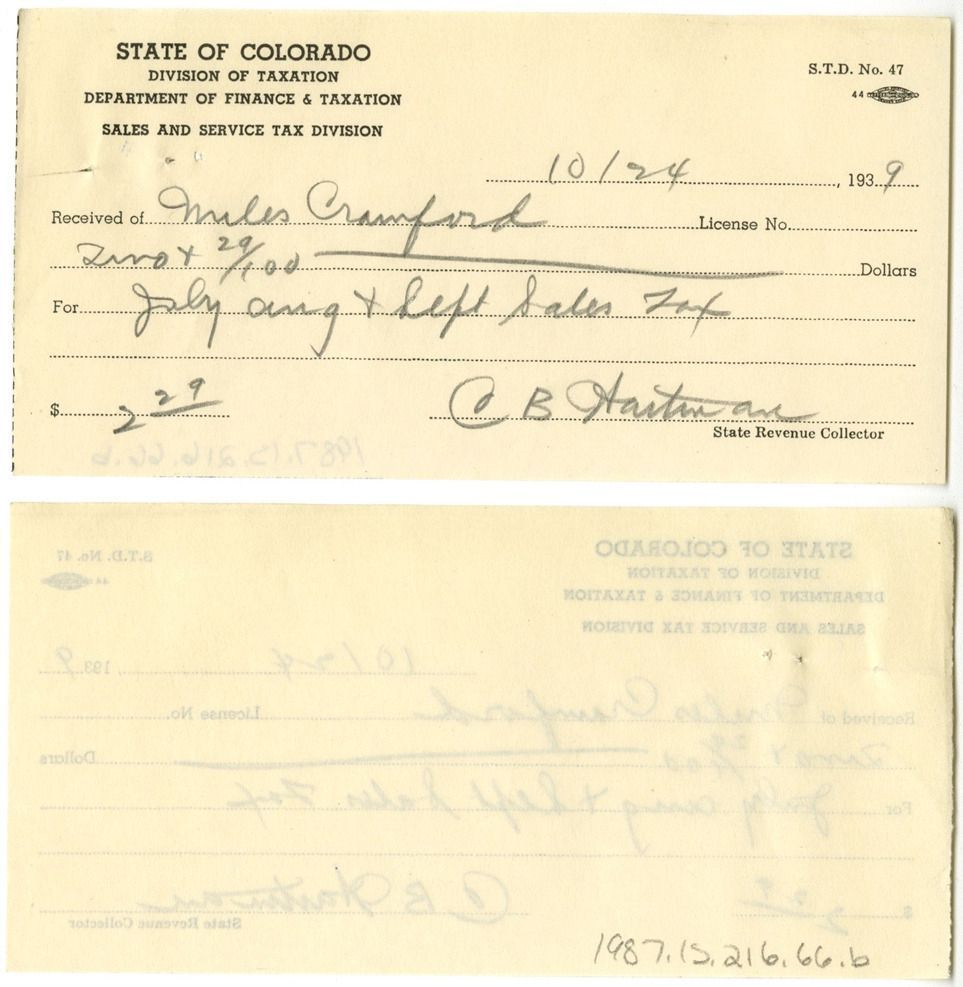 STATE OF COLORADO
DIVISION OF TAXATION
DEPARTMENT OF FINANCE & TAXATION
SALES AND SERVICE TAX DIVISION
S.T.D. No. 47
44
10/24, 1939
Received of Miles Crawford License No.
Two + 29/100 Dollars
For July aug + Sept Sales Tax
$ 2 29
C B Hartman
State Revenue Collector
1987.15.216.66.b